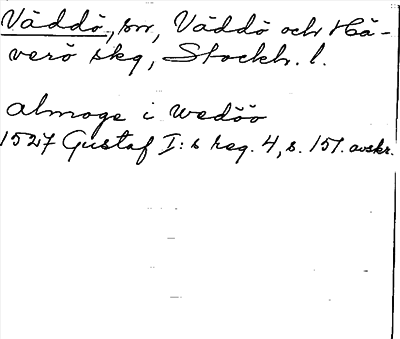 Väddö, sn, Väddö och Hä-
verö skg, Stockh. l.
almoge i Wedöö
1527 Gustaf I:s reg. 4, s. 151. avskr.